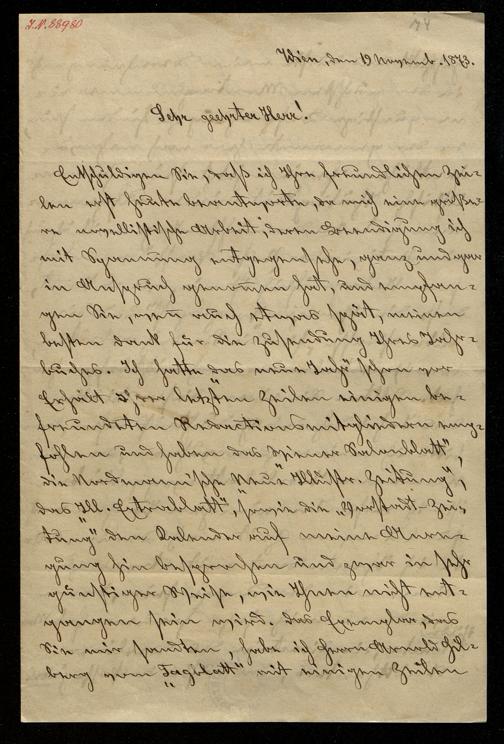 I.N. 88980
74
Wien, den 19 Novemb. 1873.
Sehr geehrter Herr!
Entschuldigen Sie, daß ich Ihre freundlichen Zei-
len erst heute beantworte, da mich eine größe-
re novellistische Arbeit, deren Beendigung ich
mit Spannung entgegensehe, ganz und gar
in Anspruch genommen hat, und empfan-
gen Sie, wenn auch etwas spät, meinen
besten Dank für die Zusendung Ihres Jahr-
buches. Ich hatte das neue Jahr" schon vor
Erhalt Ihrer letzten Zeilen einigen be-
freundeten Redactionsmitgliedern emp-
fohlen und haben das Wiener Salonblatt",
die Nordmannische „Neue Illustr. Zeitung",
das Ill. Extrablatt", sowie die „Vorstadt-Zei-
tung" den Kalender auf meine Anre-
gung hin besprochen und zwar in sehr
günstiger Weise, wie Ihnen nicht ent-
gangen sein wird. Das Exemplar, das
Sie mir sandten, habe ich Herrn Arnold Hil-
berg vom „Tagblatt" mit einigen Zeilen